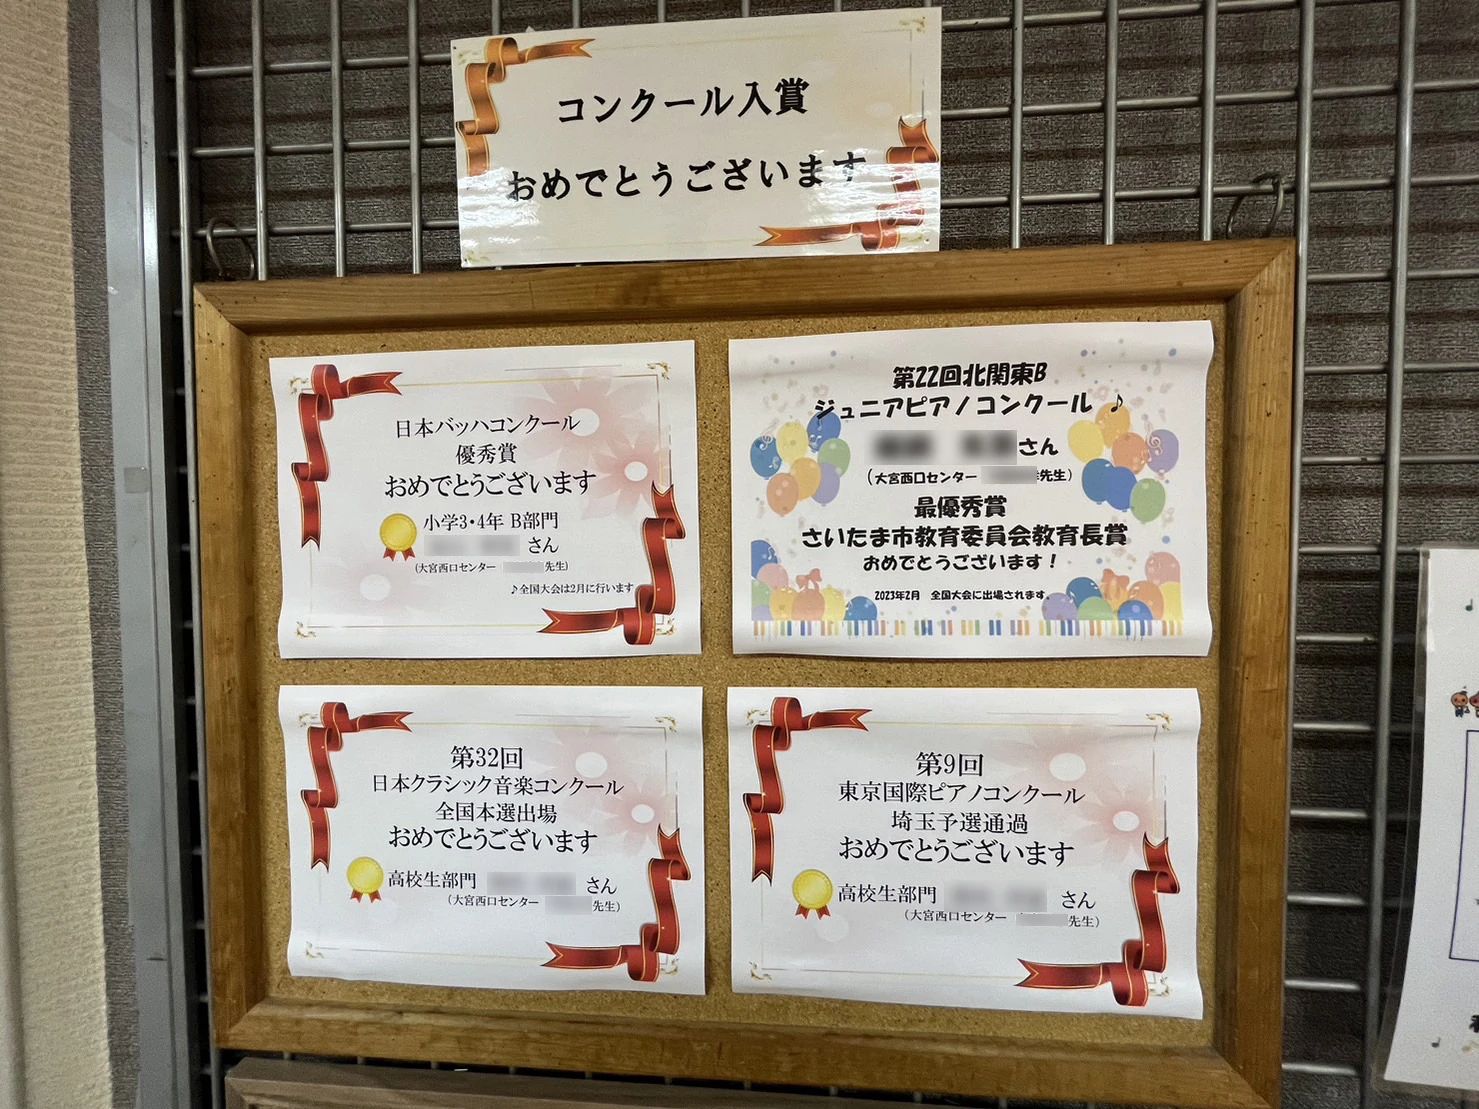 コンクール入賞
おめでとうございます
日本バッハコンクール
優秀賞
おめでとうございます
小学3・4年 B部門
さん
(大宮西口センター 先生)
♪全国大会は2月に行います
第22回北関東B
ジュニアピアノコンクール ♪
さん
(大宮西口センター 先生)
最優秀賞
さいたま市教育委員会教育長賞
おめでとうございます！
2023年2月 全国大会に出場されます。
第32回
日本クラシック音楽コンクール
全国本選出場
おめでとうございます
高校生部門 さん
(大宮西口センター 先生)
第9回
東京国際ピアノコンクール
埼玉予選通過
おめでとうございます
高校生部門 さん
(大宮西口センター 先生)